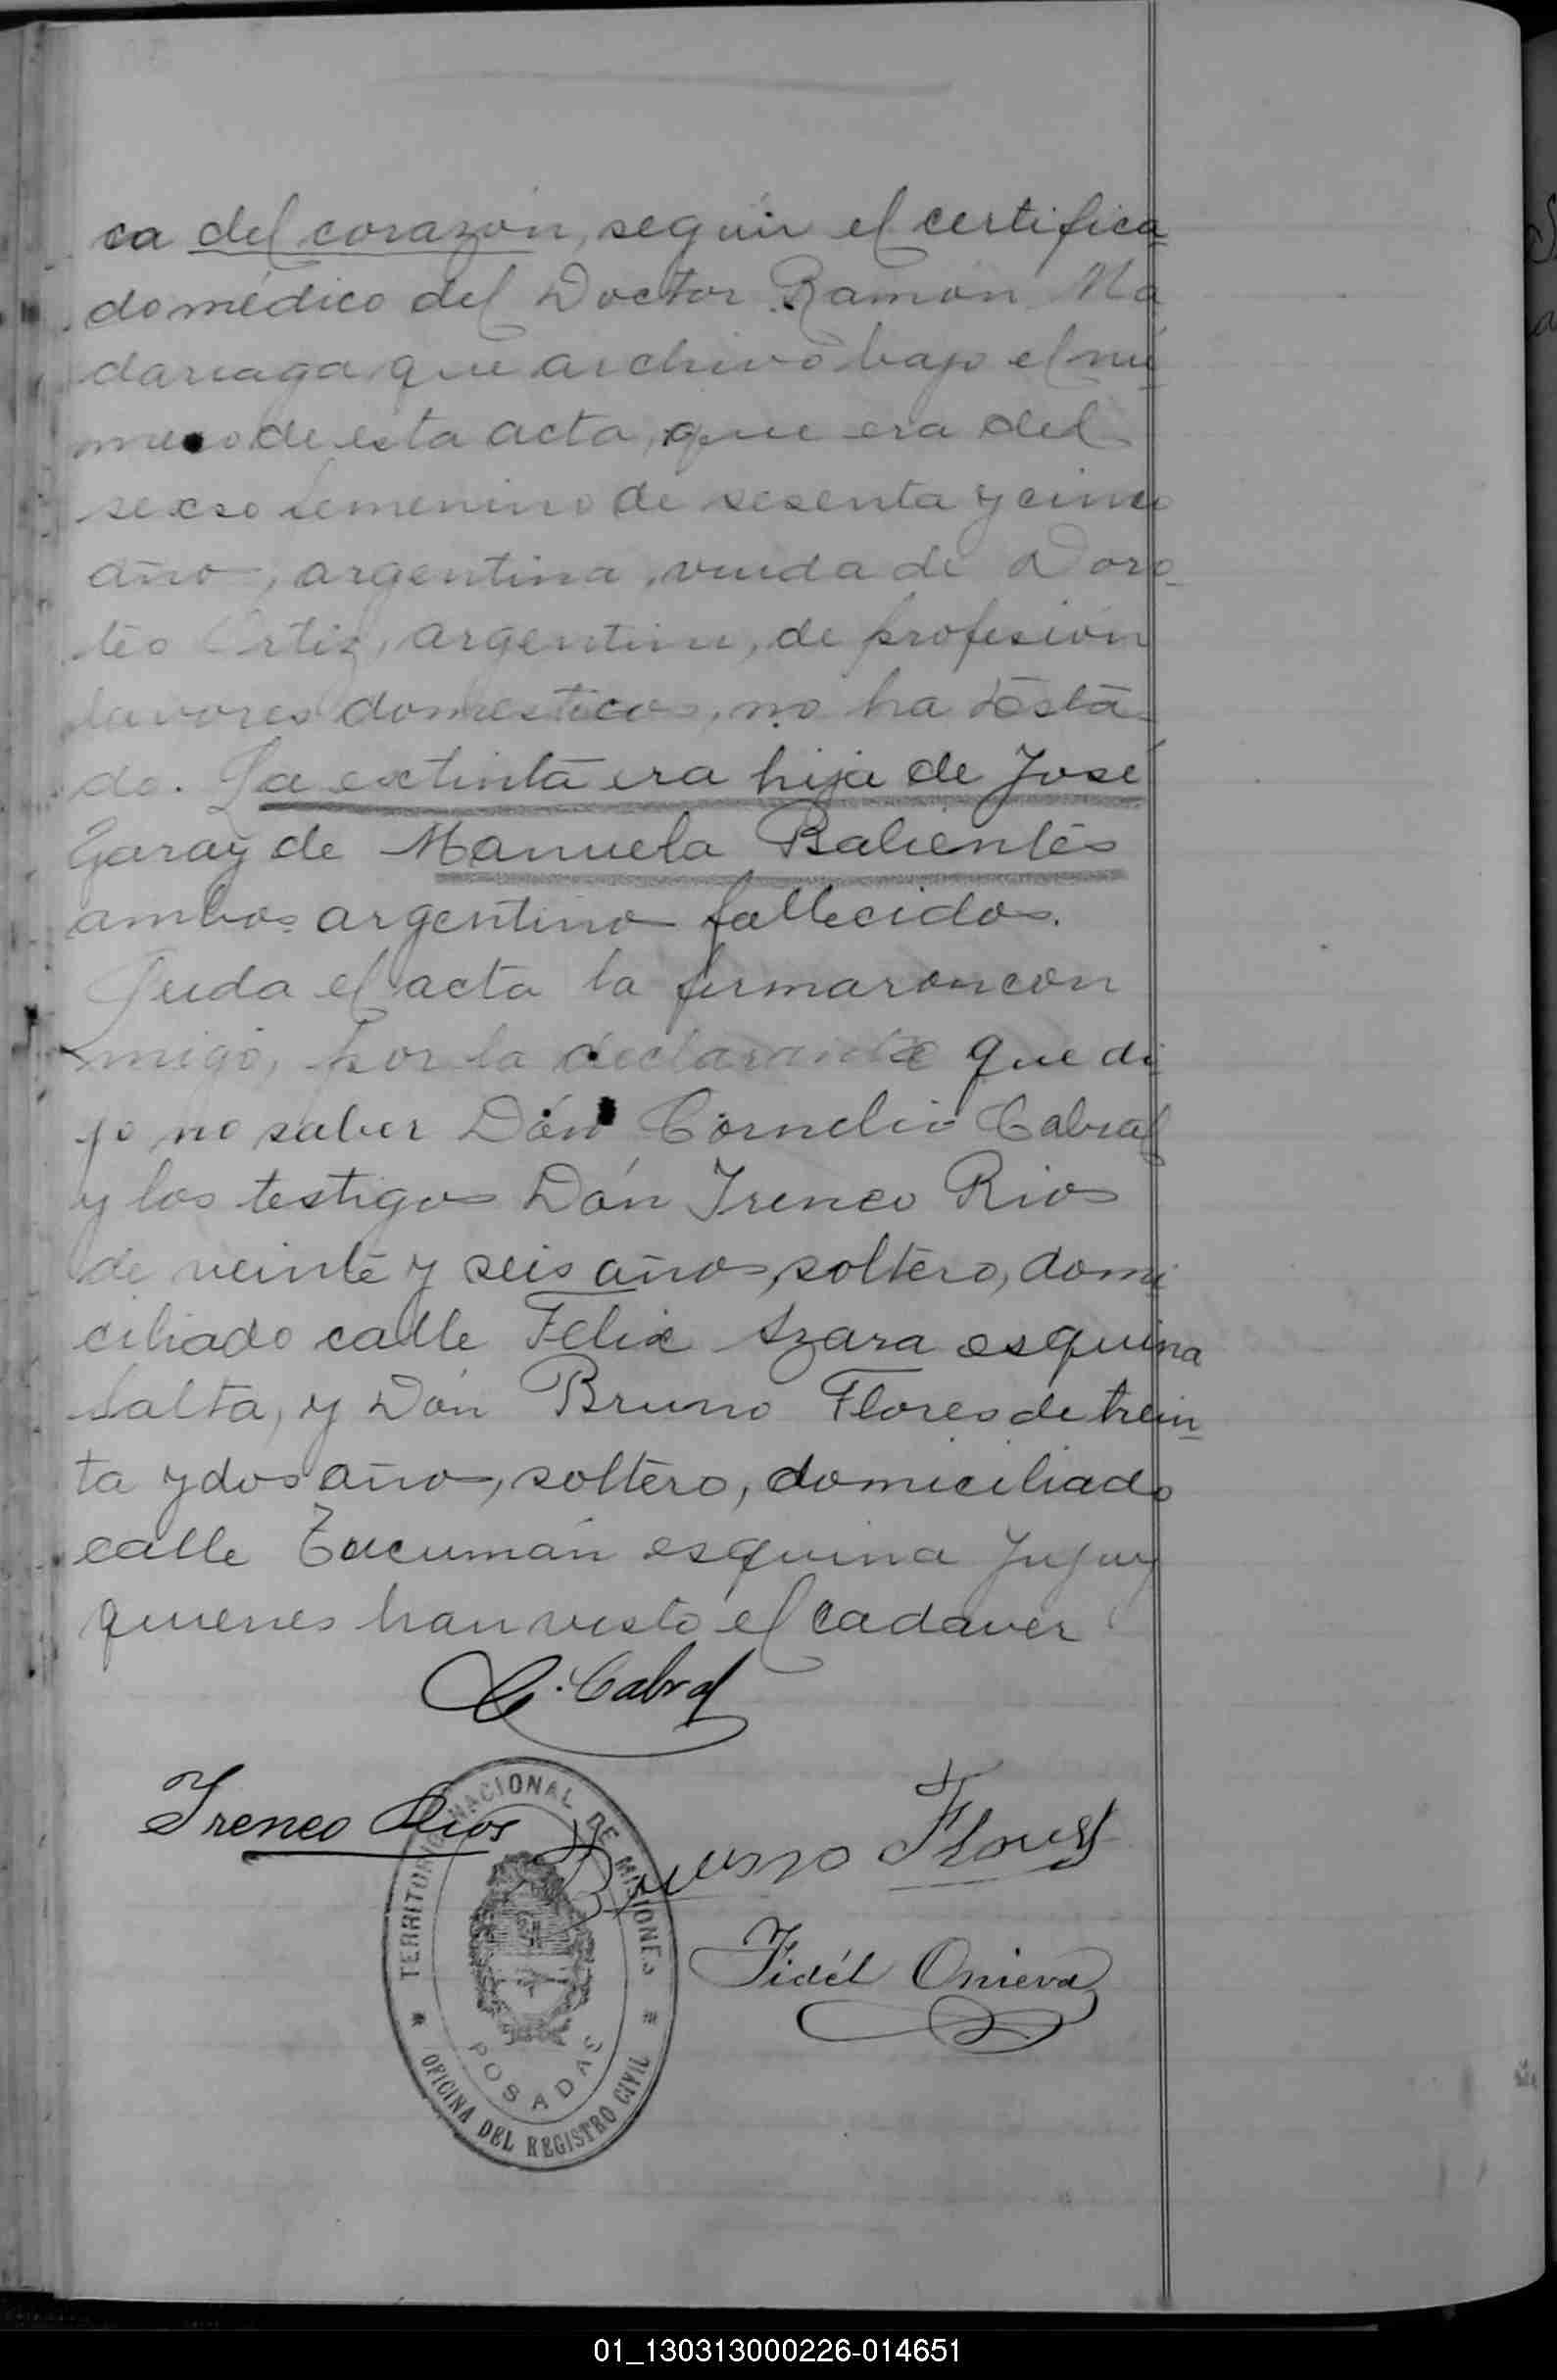 ca del corazón, según el certifica
do médico del Doctor Ramón Ma
dariaga que archivo bajo el nú
mero de esta acta, que era del
secso femenino de sesenta y cinco
años, argentina, viuda de Doro
teo Ortiz, argentino, de profesión
lavores domesticos, no ha testa
do. La extinta era hija de José
Garay de Manuela Balientes
ambos argentinos fallecidos.
Leida el acta la firmaron con
migo, por la declarante que di
jo no saber Dón Cornelio Cabral
y los testigos Dón Ireneo Rios
de veinte y seis años, soltero, domi
ciliado calle Felix Azara esquina
Salta, y Dón Bruno Flores de trein
ta y dos años, soltero, domiciliado
calle Tucumán esquina Jujuy
quienes han visto el cadaver
C. Cabral
Ireneo Rios
Bruno Flores
Fidél Onieva
TERRITORIO NACIONAL DE MISIONES
POSADAS
OFICINA DEL REGISTRO CIVIL
01_130313000226-014651